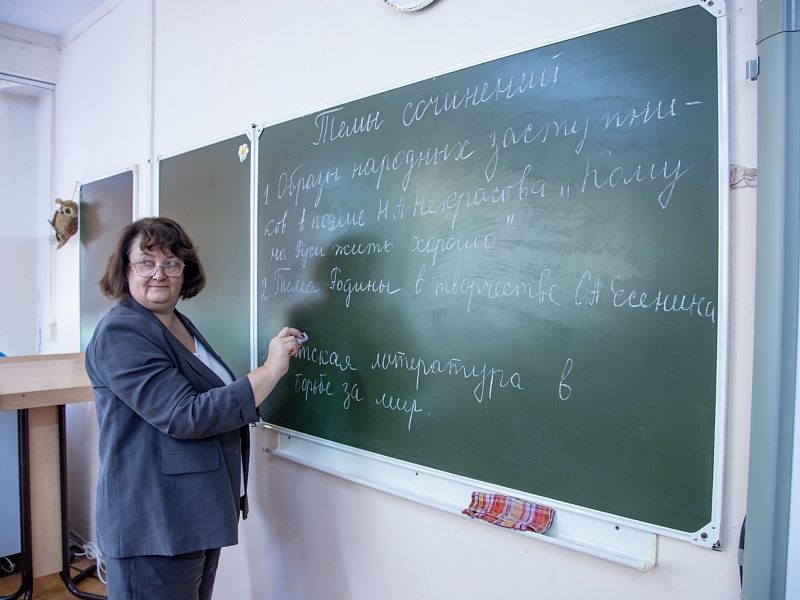 Темы сочинений
1 Образы народных заступни-
ков в поэме Н А Некрасова „Кому
на Руси жить хорошо"
2 Тема Родины в творчестве С А Есенина
литература в
борьбе за мир.